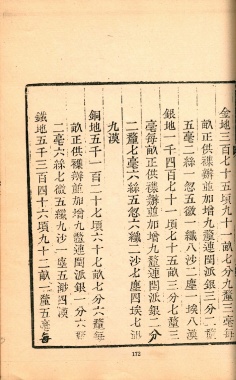 金地三百七十五頃九十一畝七分九釐三毫每
畝正供襍辦並加增九釐連閏派銀三分二釐
五毫二絲一忽五微一纖八沙二塵一埃八漠
銀地一千四百七十一頃七十五畝三分七釐三
毫每畝正供襍辦並加增九釐連閏派銀二分
二釐七毫六絲五忽六纖一沙七塵四埃七渺
九漠
銅地五千一百二十七頃六十七畝七分六釐每
畝正供襍辦並加增九釐連閏派銀一分六釐
二毫六絲七微五纖九沙一塵五渺四漠
鐵地五千三百四十六頃九十二畝一釐五毫每
172